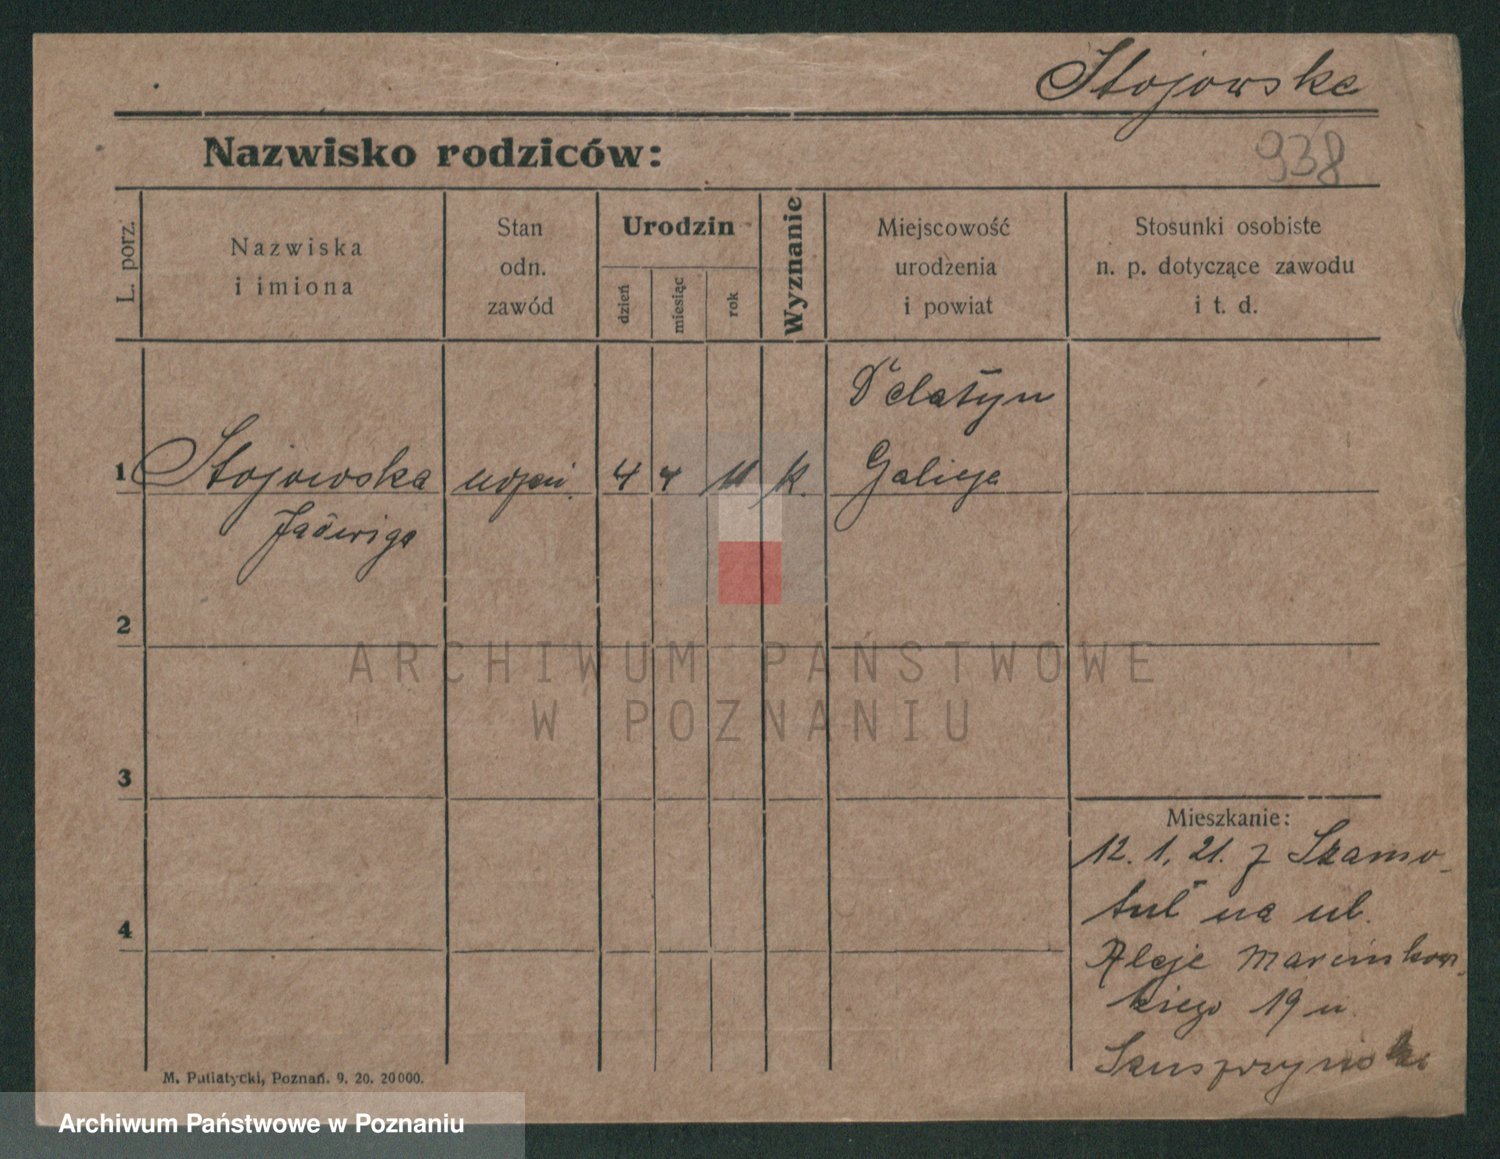 Stojowska
Nazwisko rodziców:
938
L. porz.
Nazwiska
i imiona
Stan
odn.
zawód
Urodzin
dzień
miesiąc
rok
Wyznanie
Miejscowość
urodzenia
i powiat
Stosunki osobiste
n. p. dotyczące zawodu
i t. d.
Delatyn
1 Stojowska 4 4 11 k. Galicja
Jadwiga
2
ARCHIWUM PAŃSTWOWE
W POZNANIU
3
Mieszkanie:
12. 1. 21. z Szamo-
tuł na ul.
4
Aleje Marcinkow-
kiego 19 u
M. Putiatycki, Poznań. 9. 20. 20000.
Archiwum Państwowe w Poznaniu